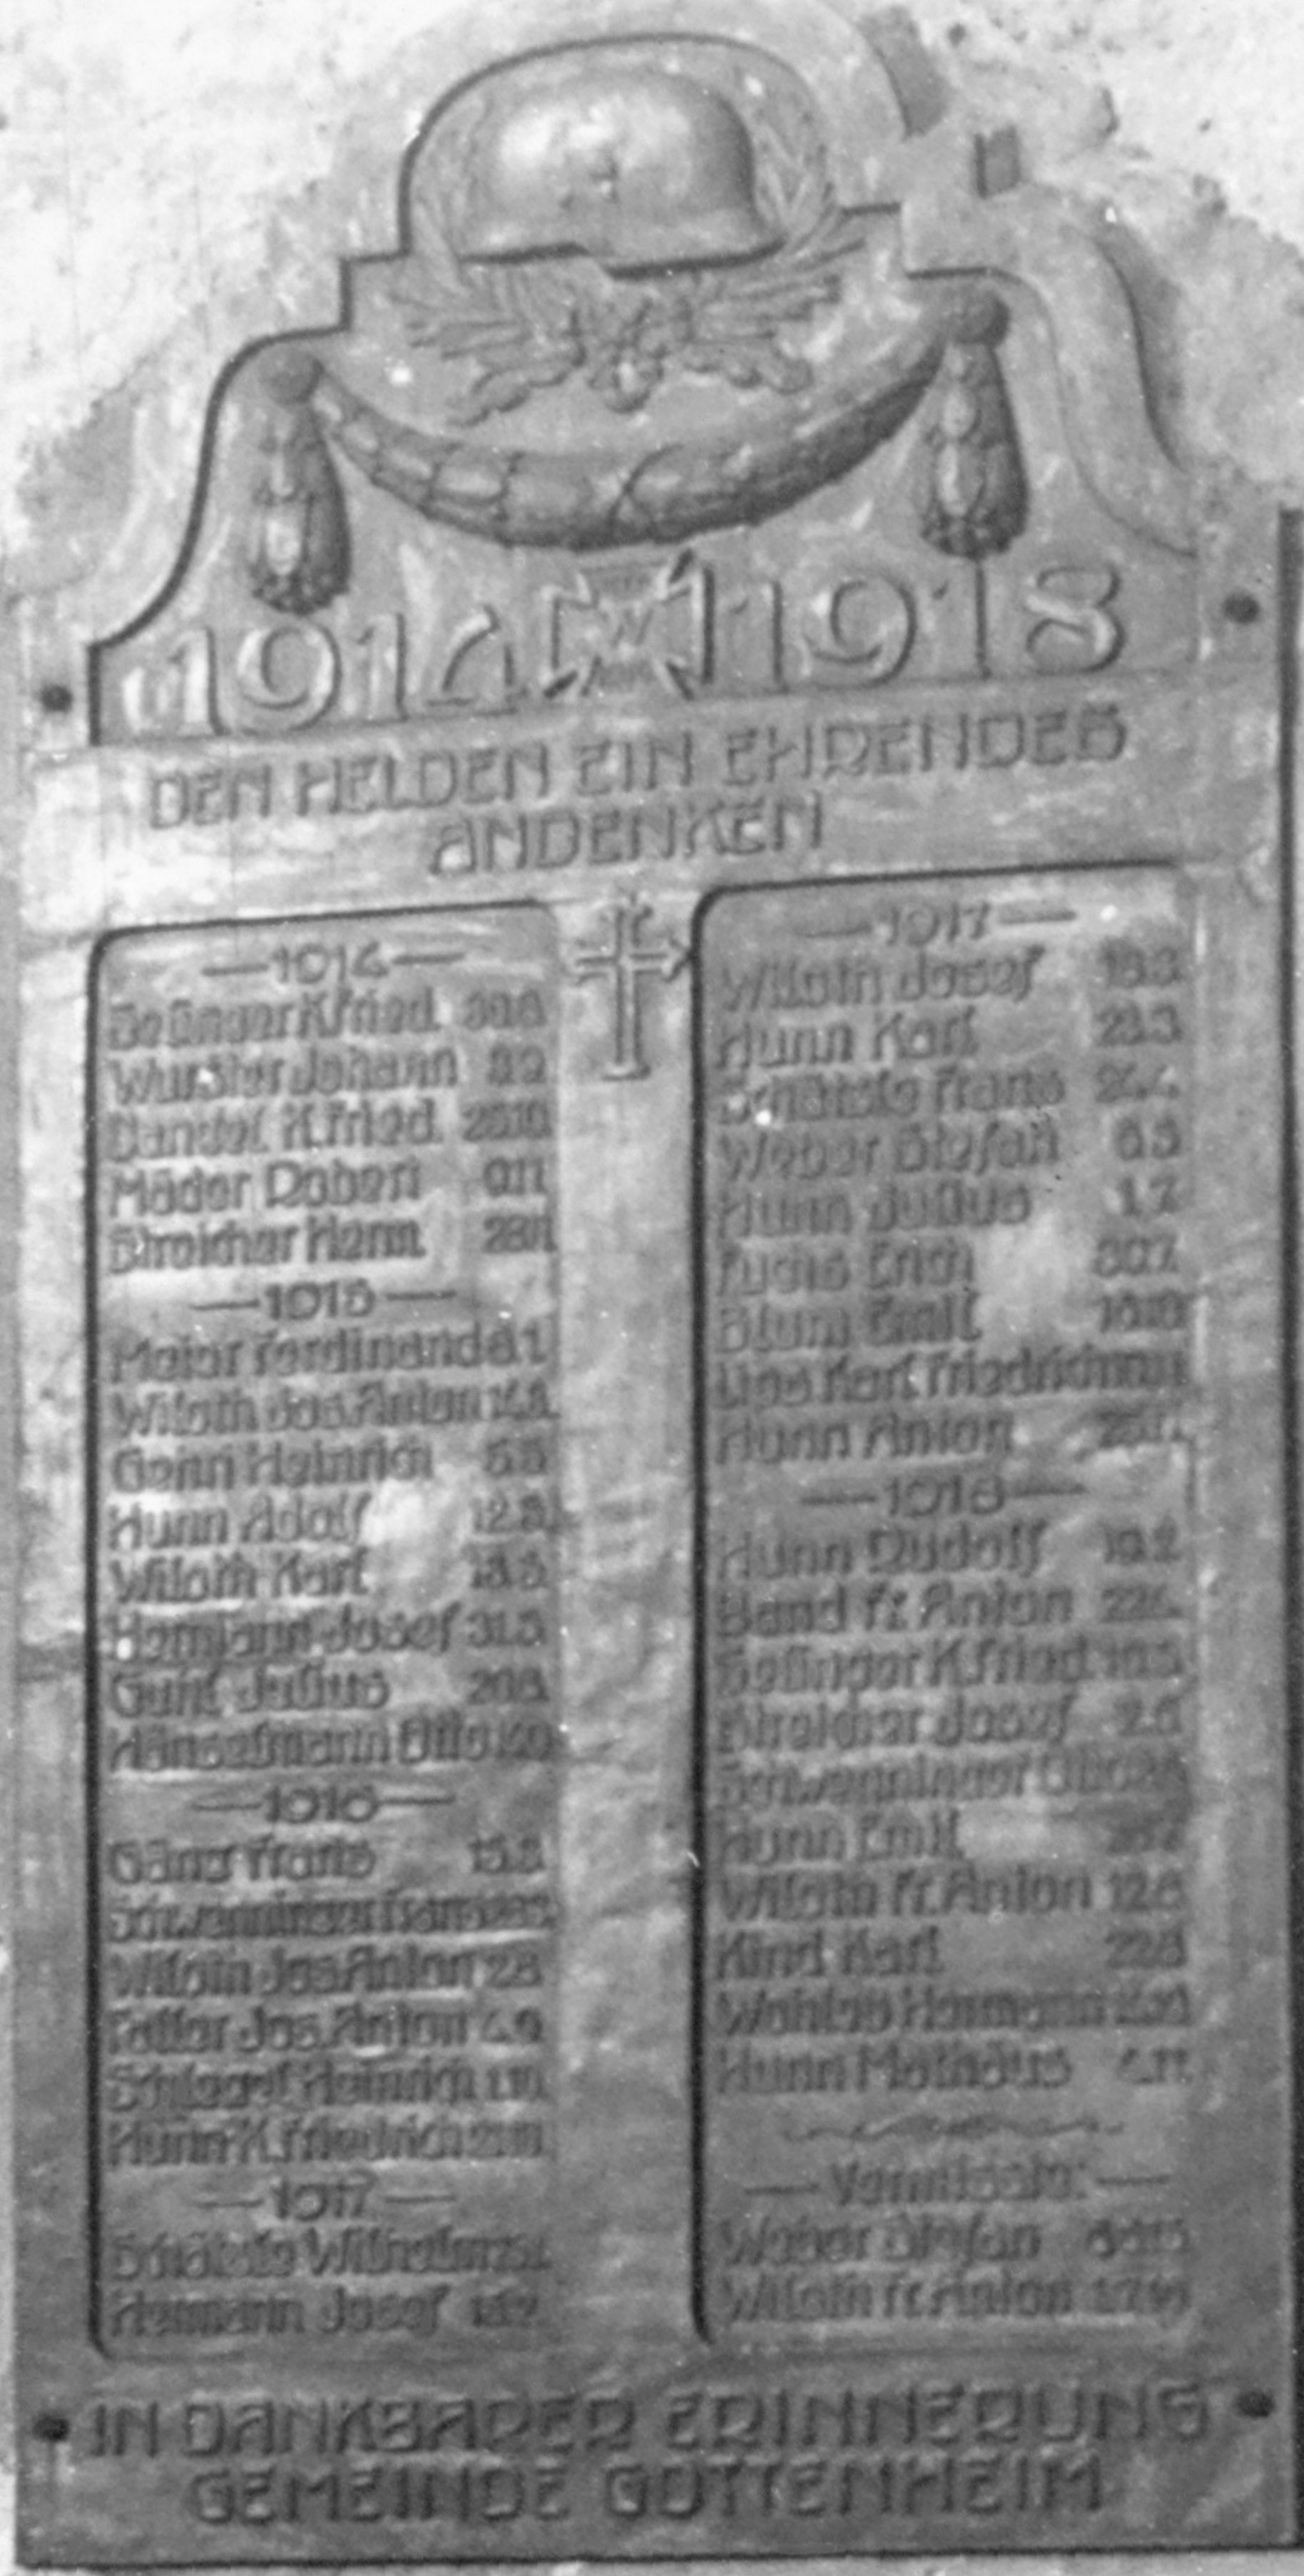 1914 1918
W
DEN HELDEN EIN EHRENDES
ANDENKEN
—1914—
K.fried. 30.8.
Wurster Johann 9.9
K.fried. 25.10.
Mäder Robert 9.11.
Streicher Herm. 28.11.
—1915—
Meier Ferdinand 8.1.
Wiloth Jos. Anton
Genn Heinrich 5.5
Hunn Adolf 12.5.
Wiloth Karl 13.5.
Hermann Josef 31.5
Julius 20.8.
Hänselmann Otto
—1916—
Gäng Franz 15.3.
Schwenninger Franz
Wiloth Jos. Anton 2.8
Faller Jos. Anton 4.9
Schlagel Heinrich 1.10.
Hunn K. Friedrich
—1917—
Schätzle Wilhelm
Hermann Josef
—1917—
Wiloth Josef 18.3.
Hunn Karl 23.3
Schätzle Franz 24.4.
Weber Stefan 6.5
Hunn Julius 1.7.
Fuchs Erich 30.7.
Blum Emil 18.10
Karl Friedrich
Hunn Anton
—1918—
Hunn Rudolf 19.2.
Band Fr. Anton
K.fried.
Streicher Josef
Schwenninger
Hunn Emil
Wiloth Fr. Anton 12.8
Kind Karl 22.8
Hermann
Hunn Mathäus 4.11.
—Vermisste:—
Weber Stefan
Wiloth Fr. Anton
IN DANKBARER ERINNERUNG
GEMEINDE GOTTENHEIM